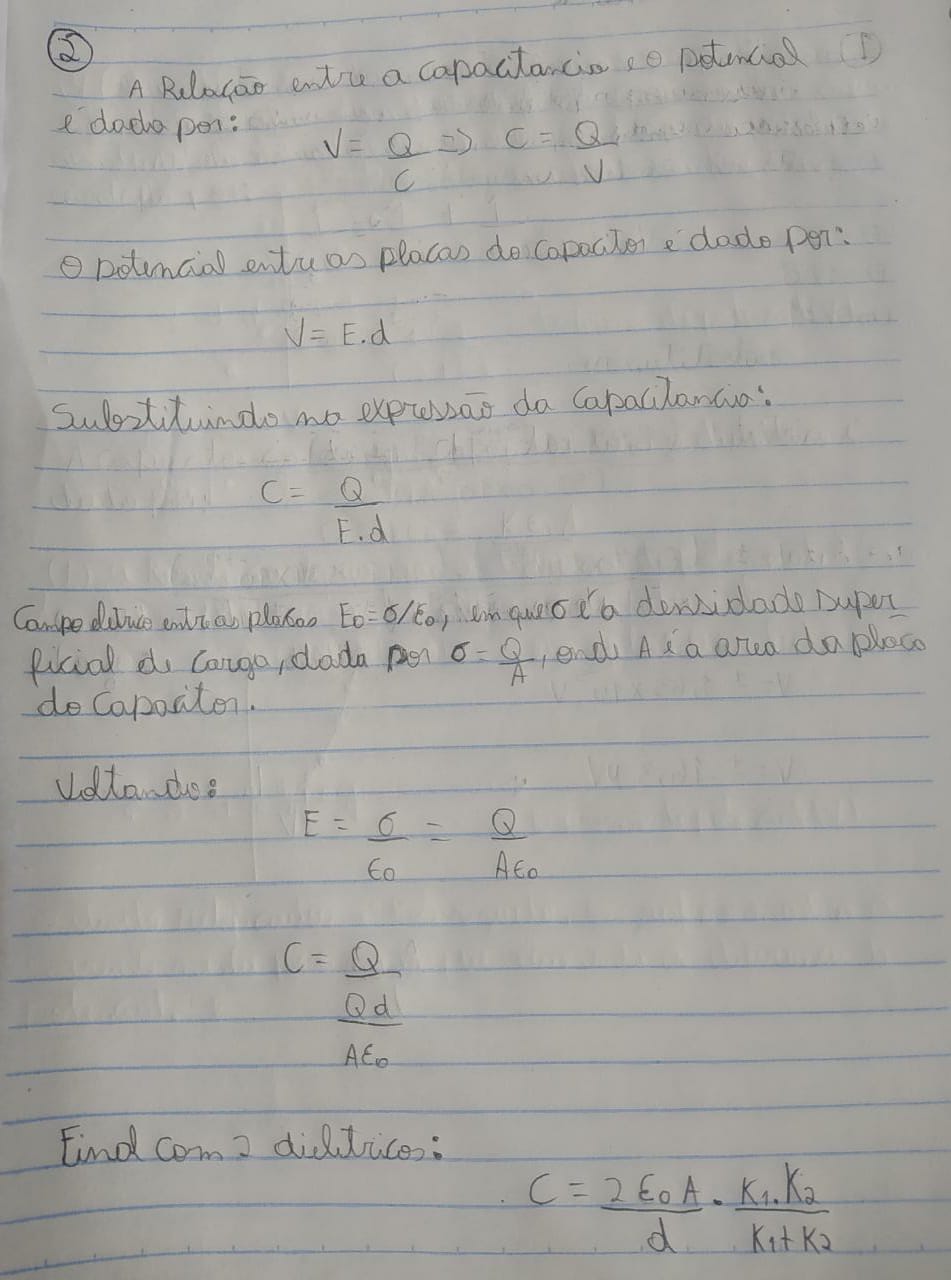 2
A Relação entre a capacitancia e o potencial (1)
é dado por:
V = Q/C => C = Q/V
O potencial entre as placas do capacitor é dado por:
V = E.d
Substituindo na expressão da capacitancia:
C = Q/E.d
Campo eletrico entre as placas E0 = σ/ε0, em que σ é a densidade super
ficial de carga, dada por σ = Q/A, onde A é a area da placa
do capacitor.
Voltando:
E = σ/ε0 = Q/Aε0
C = Q/(Qd/Aε0)
Final com 2 dieletricos:
C = 2ε0A/d . K1.K2/K1+K2